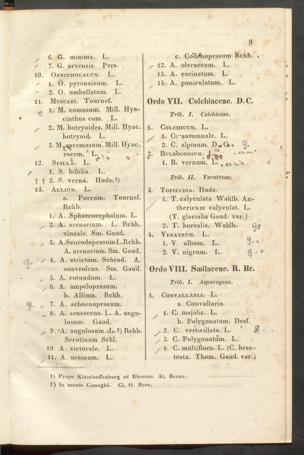 9
6. G. minima. L.
7. G. arvensis. Pers.
10. Ornithogalum. L.
1. O. pyrenaicum. L.
2. O. umbellatum. L.
11. Muscari. Tournef.
1. M. comosum. Mill. Hya-
cinthus com. L.
2. M. botryoides. Mill. Hyac.
botryoid. L.
3. M. racemosum. Mill. Hyac.
racem. L.
12. Scilla. L.
1. S. bifolia. L.
† † 2. S. verna. Huds.¹)
13. Allium. L.
a. Porrum. Tournef.
Rchb.
1. A. Sphaerocephalum. L.
2. A. arenarium. L. Rchb.
vineale. Sm. Gaud.
3. A. Scorodoprasum L. Rchb.
A. arenarium. Sm. Gaud.
4. A. strictum. Schrad. A.
suaveolens. Sm. Gaud.
5. A. rotundum. L.
6. A. ampeloprasum.
b. Allium. Rchb.
7. A. schoenoprasum.
8. A. senescens. L. A. angu-
losum. Gaud.
9. A. angulosum. L. ²) Rchb.
Scrotinum Schl.
10. A. victoriale. L.
11. A. ursinum. L.
c. Codonoprasum Rchb.
12. A. oleraceum. L.
13. A. carinatum. L.
14. A. paniculatum. L.
Ordo VII. Colchiaceae. D.C.
Trib. I. Colchiceae.
1. Colchicum. L.
1. C. autumnale. L.
2. C. alpinum. D. C.
2. Bulbocodium. L.
1. B. vernum. L.
Trib. II. Veratreae.
3. Tofieldia. Huds.
1. T. calyculata Wahlb. An-
thericum calyculat. L.
(T. glacialis Gaud. var.)
2. T. borealis. Wahlb.
4. Veratrum. L.
1. V. album. L.
2. V. nigrum. L.
Ordo VIII. Smilaceae. R. Br.
Trib. I. Asparageae.
1. Convallaria. L.
a. Convallaria.
1. C. majalis. L.
b. Polygonatum. Desf.
2. C. verticillata. L.
3. C. Polygonatum. L.
4. C. multiflora. L. (C. brac-
teata. Thom. Gaud. var.)
1) Prope Kleinlauffenburg ad Rhenum. Al. Braun.
2) In monte Camoghé. Cl. O. Heer.